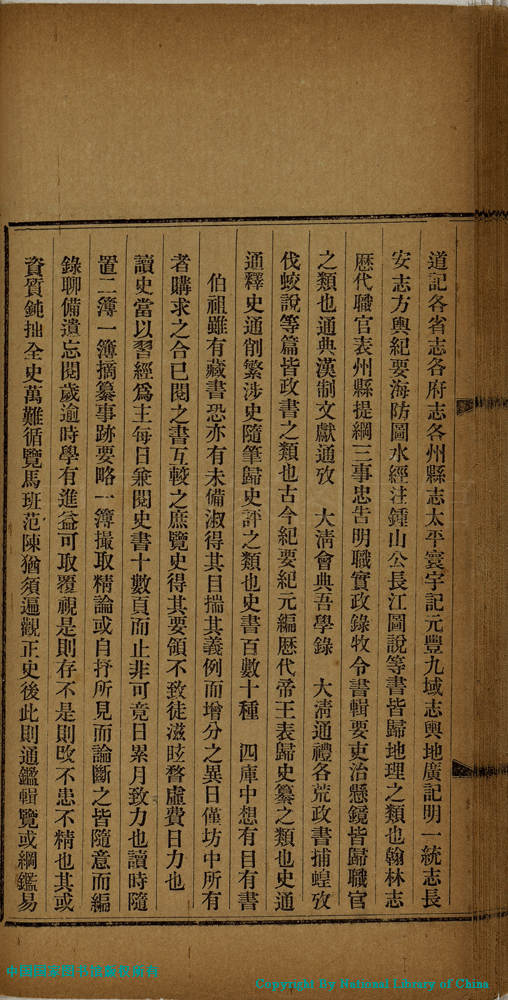 道記各省志各府志各州縣志太平寰宇記元豐九域志輿地廣記明一統志長
安志方輿紀要海防圖水經注鍾山公長江圖說等書皆歸地理之類也翰林志
歷代職官表州縣提綱三事忠告明職實政錄牧令書輯要吏治懸鏡皆歸職官
之類也通典漢制文獻通攷 大淸會典吾學錄 大淸通禮各荒政書捕蝗攷
伐蛟說等篇皆政書之類也古今紀要紀元編歷代帝王表歸史纂之類也史通
通釋史通削繁涉史隨筆歸史評之類也史書百數十種 四庫中想有目有書
伯祖雖有藏書恐亦有未備淑得其目揣其義例而增分之異日僅坊中所有
者購求之合已閱之書互較之庶覽史得其要領不致徒滋眩瞀虛費日力也
讀史當以習經爲主每日兼閱史書十數頁而止非可竟日累月致力也讀時隨
置二簿一簿摘纂事跡要略一簿撮取精論或自抒所見而論斷之皆隨意而編
錄聊備遺忘閱歲逾時學有進益可取覆視是則存不是則改不患不精也其或
資質鈍拙全史萬難循覽馬班范陳猶須遍觀正史後此則通鑑輯覽或綱鑑易
中国国家图书馆版权所有
Copyright By National Library of China